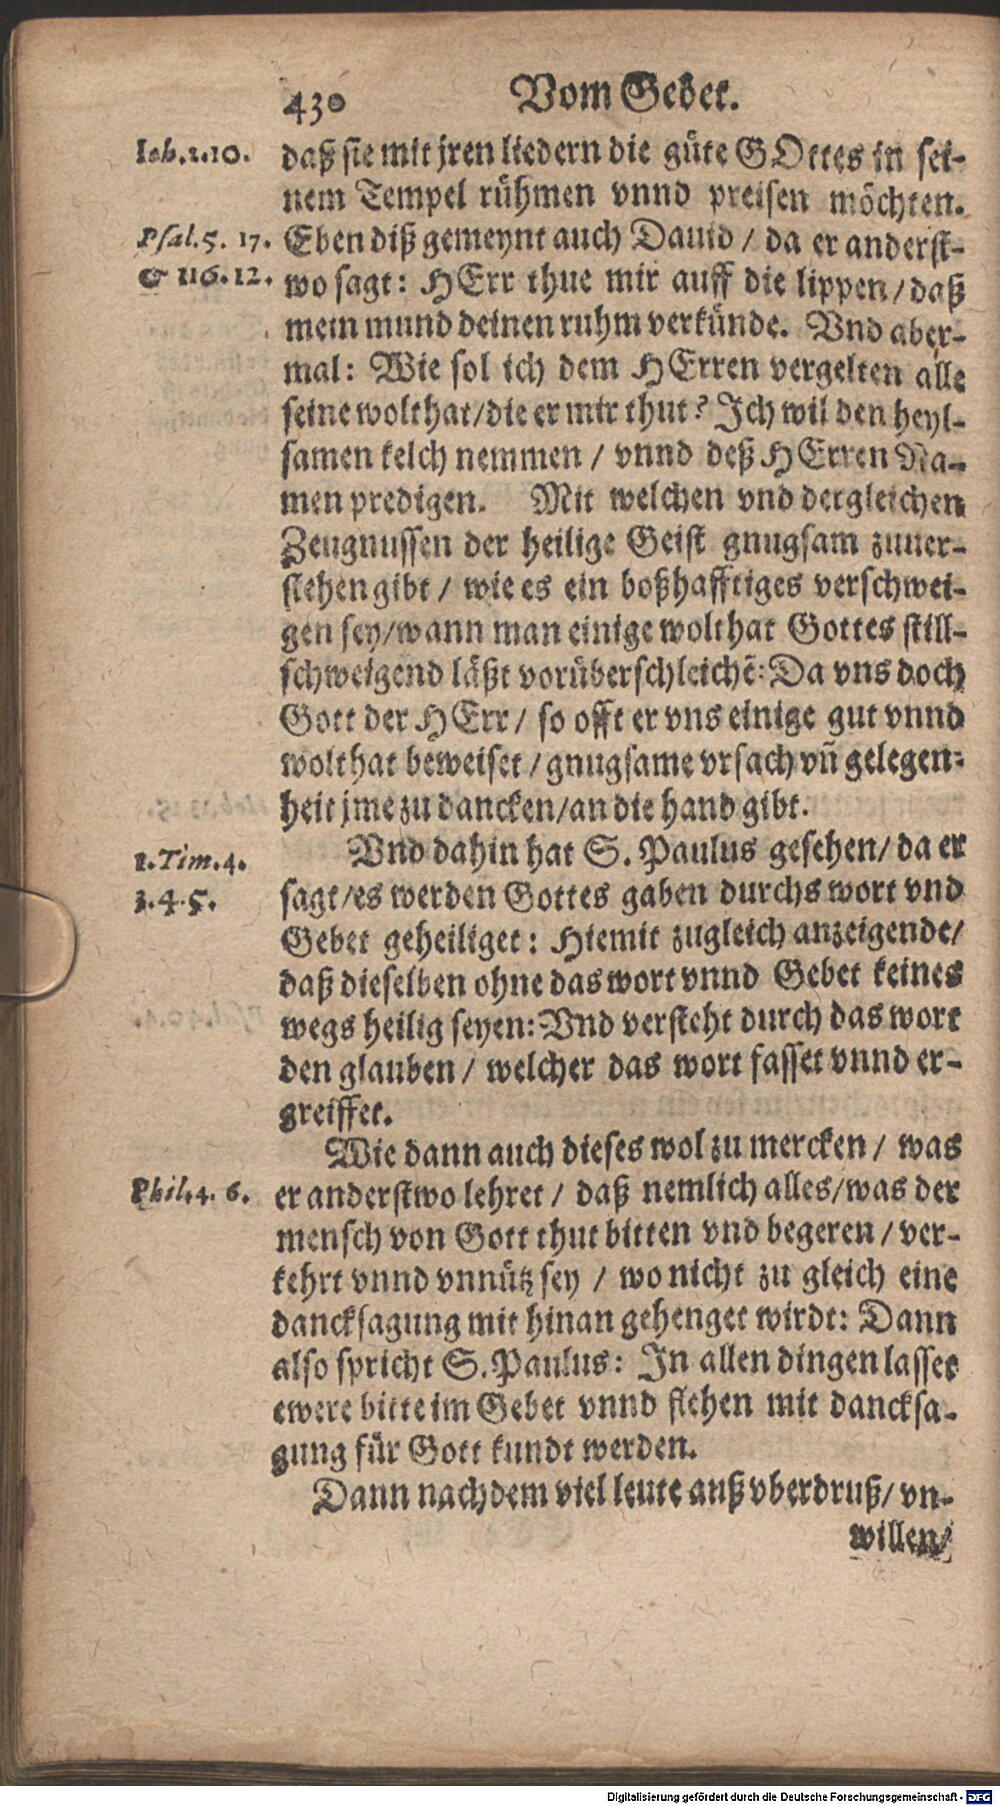 430 Vom Gebet.
Ioh.2.10. daß sie mit jren liedern die güte GOttes in sei-
nem Tempel rühmen vnnd preisen möchten.
Psal.5. 17. Eben diß gemeynt auch Dauid / da er anderst-
& 116.12. wo sagt: HErr thue mir auff die lippen / daß
mein mund deinen ruhm verkünde. Vnd aber-
mal: Wie sol ich dem HErren vergelten alle
seine wolthat/die er mir thut? Ich wil den heyl-
samen kelch nemmen / vnnd deß HErren Na-
men predigen. Mit welchen vnd dergleichen
Zeugnussen der heilige Geist gnugsam zuuer-
stehen gibt / wie es ein boßhafftiges verschwei-
gen sey/wann man einige wolthat Gottes still-
schweigend läßt vorüberschleichē: Da vns doch
Gott der HErr / so offt er vns einige gut vnnd
wolthat beweiset / gnugsame vrsach vñ gelegen-
heit jme zu dancken/an die hand gibt.
1.Tim.4. Vnd dahin hat S. Paulus gesehen/ da er
3.4.5. sagt/es werden Gottes gaben durchs wort vnd
Gebet geheiliget: Hiemit zugleich anzeigende/
daß dieselben ohne das wort vnnd Gebet keines
wegs heilig seyen: Vnd versteht durch das wort
den glauben / welcher das wort fasset vnnd er-
greiffet.
Wie dann auch dieses wol zu mercken / was
Phil.4. 6. er anderstwo lehret / daß nemlich alles/was der
mensch von Gott thut bitten vnd begeren / ver-
kehrt vnnd vnnütz sey / wo nicht zu gleich eine
dancksagung mit hinan gehenget wirdt: Dann
also spricht S. Paulus: In allen dingen lasset
ewere bitte im Gebet vnnd flehen mit dancksa-
gung für Gott kundt werden.
Dann nach dem viel leute auß vberdruß/ vn-
willen/
Digitalisierung gefördert durch die Deutsche Forschungsgemeinschaft - DFG